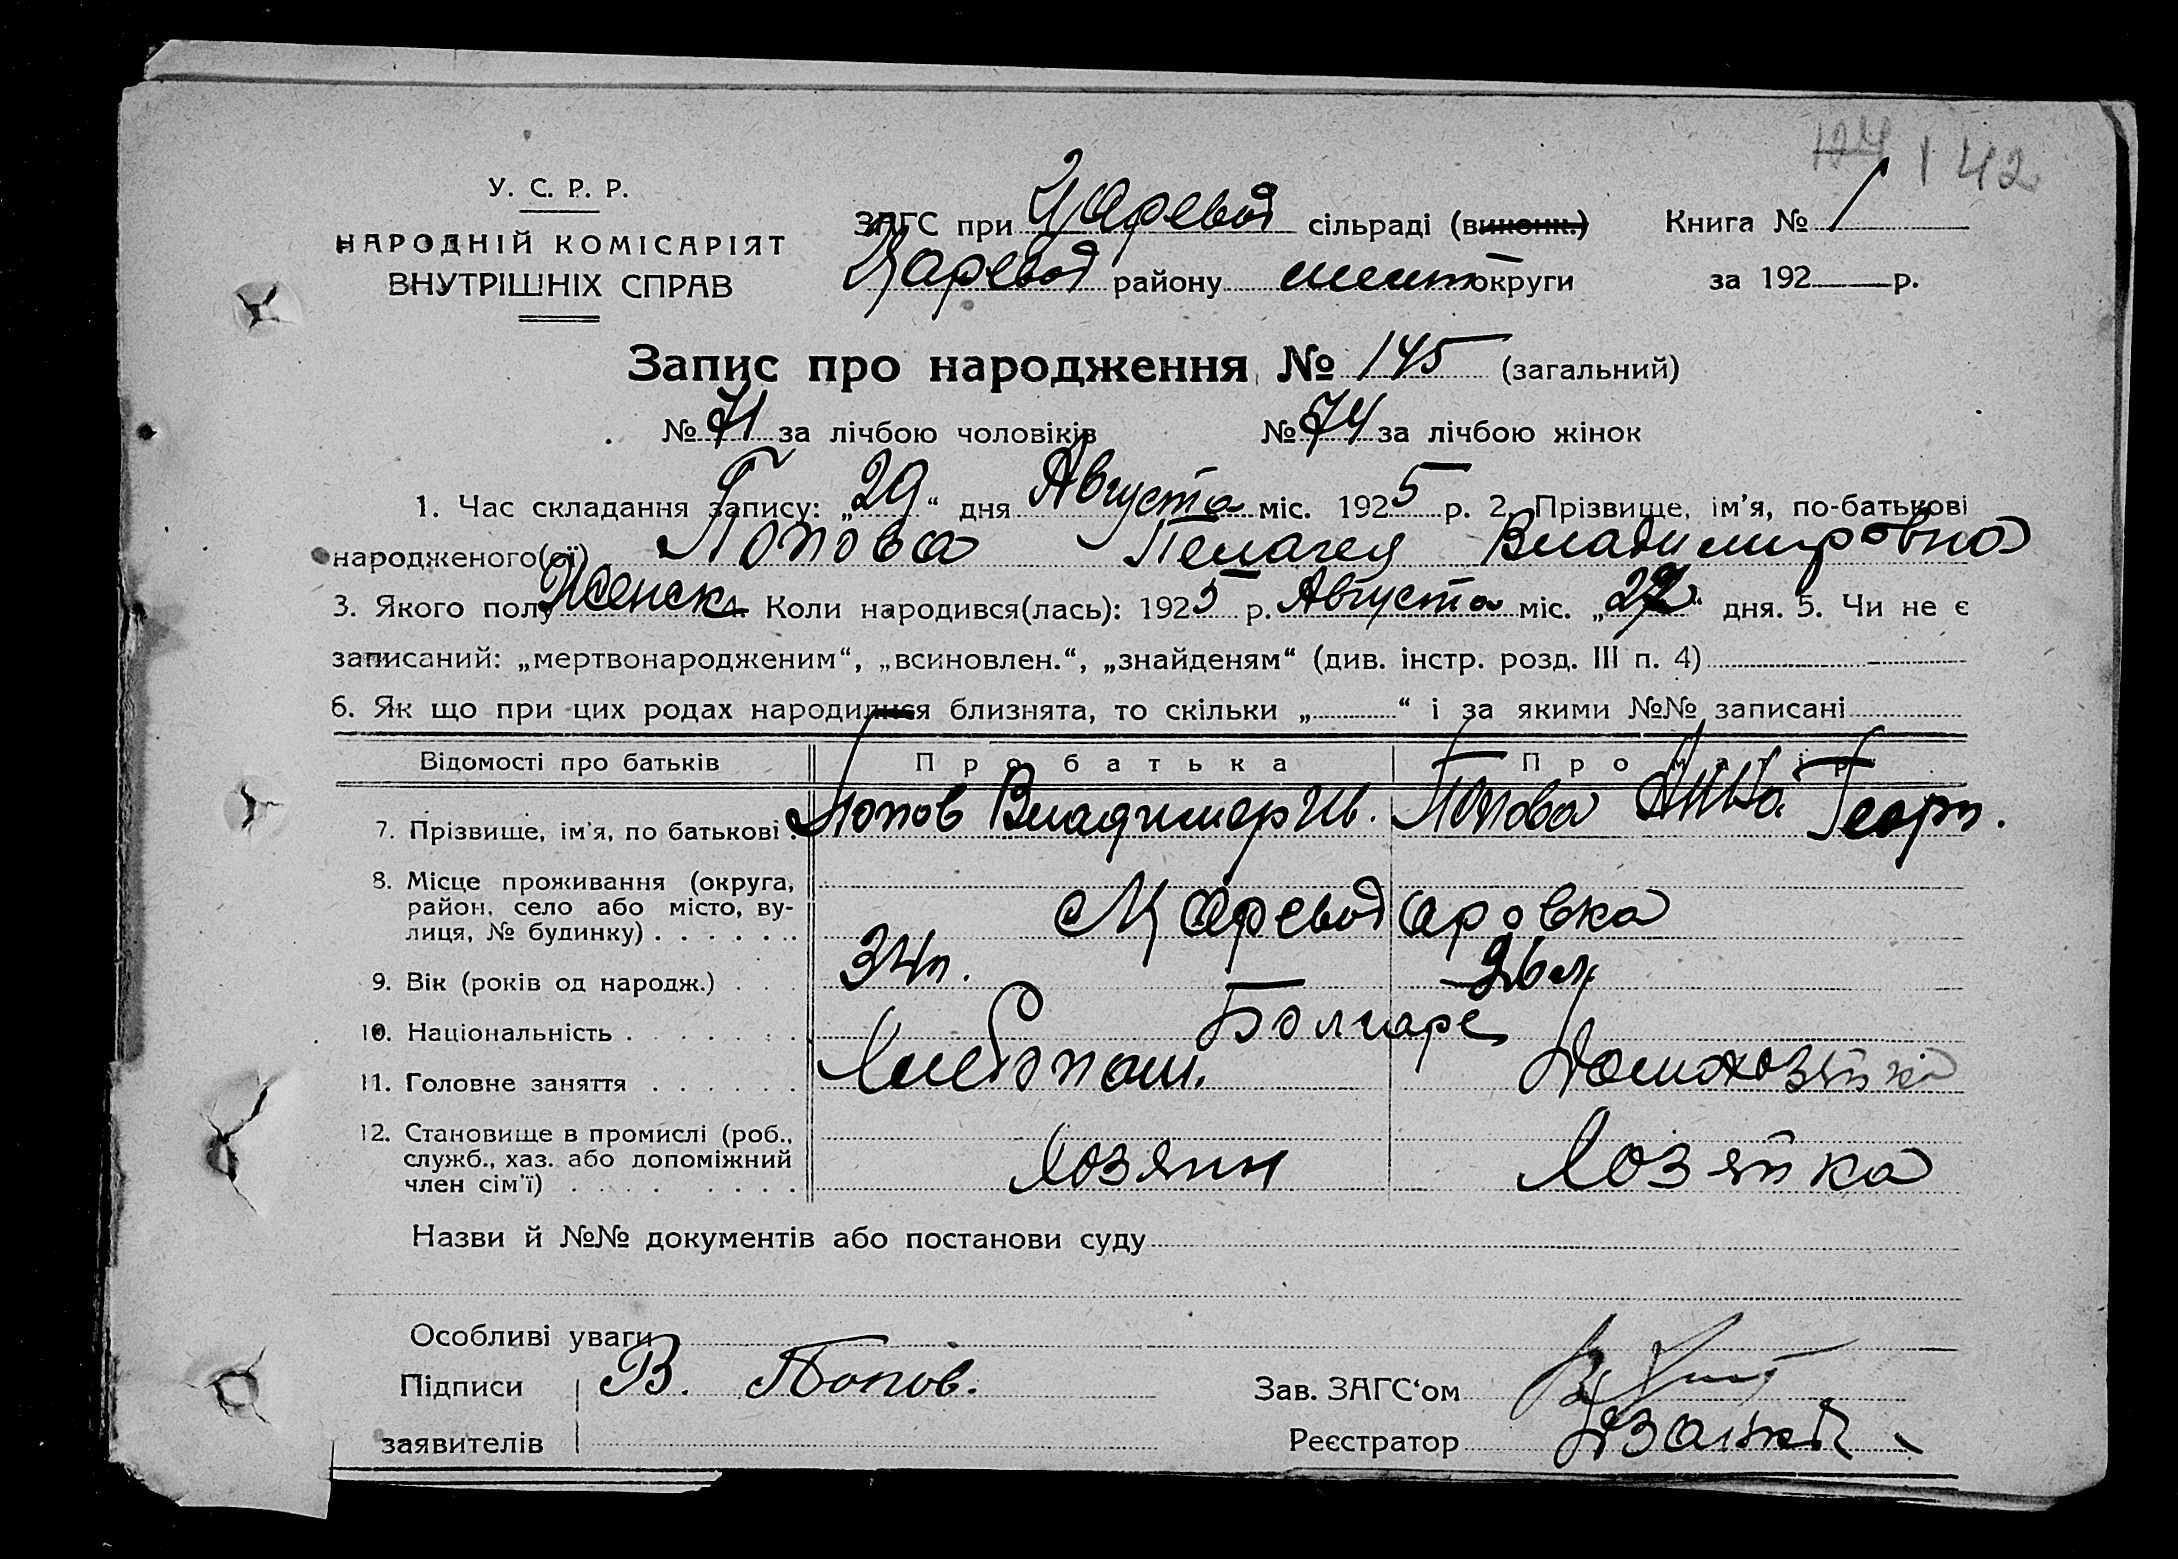 142
У. С. Р. Р.
НАРОДНІЙ КОМІСАРІЯТ
ВНУТРІШНІХ СПРАВ
ЗАГС при Царевод сільраді (виконк.) Книга № 1
Царевод району мелит округи за 192 р.
Запис про народження № 145 (загальний)
№ 71 за лічбою чоловіків № 74 за лічбою жінок
1. Час складання запису: „29“ дня Августа міс. 1925 р. 2. Прізвище, ім'я, по-батькові
народженого(ої) Попова Пелагея Владимировна
3. Якого полу Женск. Коли народився(лась): 1925 р. Августа міс. „27“ дня. 5. Чи не є
записаний: „мертвонародженим“, „всиновлен.“, „знайденям“ (див. інстр. розд. III п. 4)
6. Як що при цих родах народилися близнята, то скільки „ “ і за якими №№ записані
Відомості про батьків Про батька Про матір
7. Прізвище, ім'я, по батькові Попов Владимир Ив. Попова Анна Георг.
8. Місце проживання (округа,
район, село або місто, ву-
лиця, № будинку) Цареводаровка
9. Вік (років од народж.) 34л. 36л.
10. Національність Болгаре
11. Головне заняття Хлебопаш. Домохозяйка
12. Становище в промислі (роб.,
служб., хаз. або допоміжний
член сім'ї) Хозяин Хозяйка
Назви й №№ документів або постанови суду
Особливі уваги
Підписи В. Попов.
Зав. ЗАГС'ом
заявителів
Реєстратор